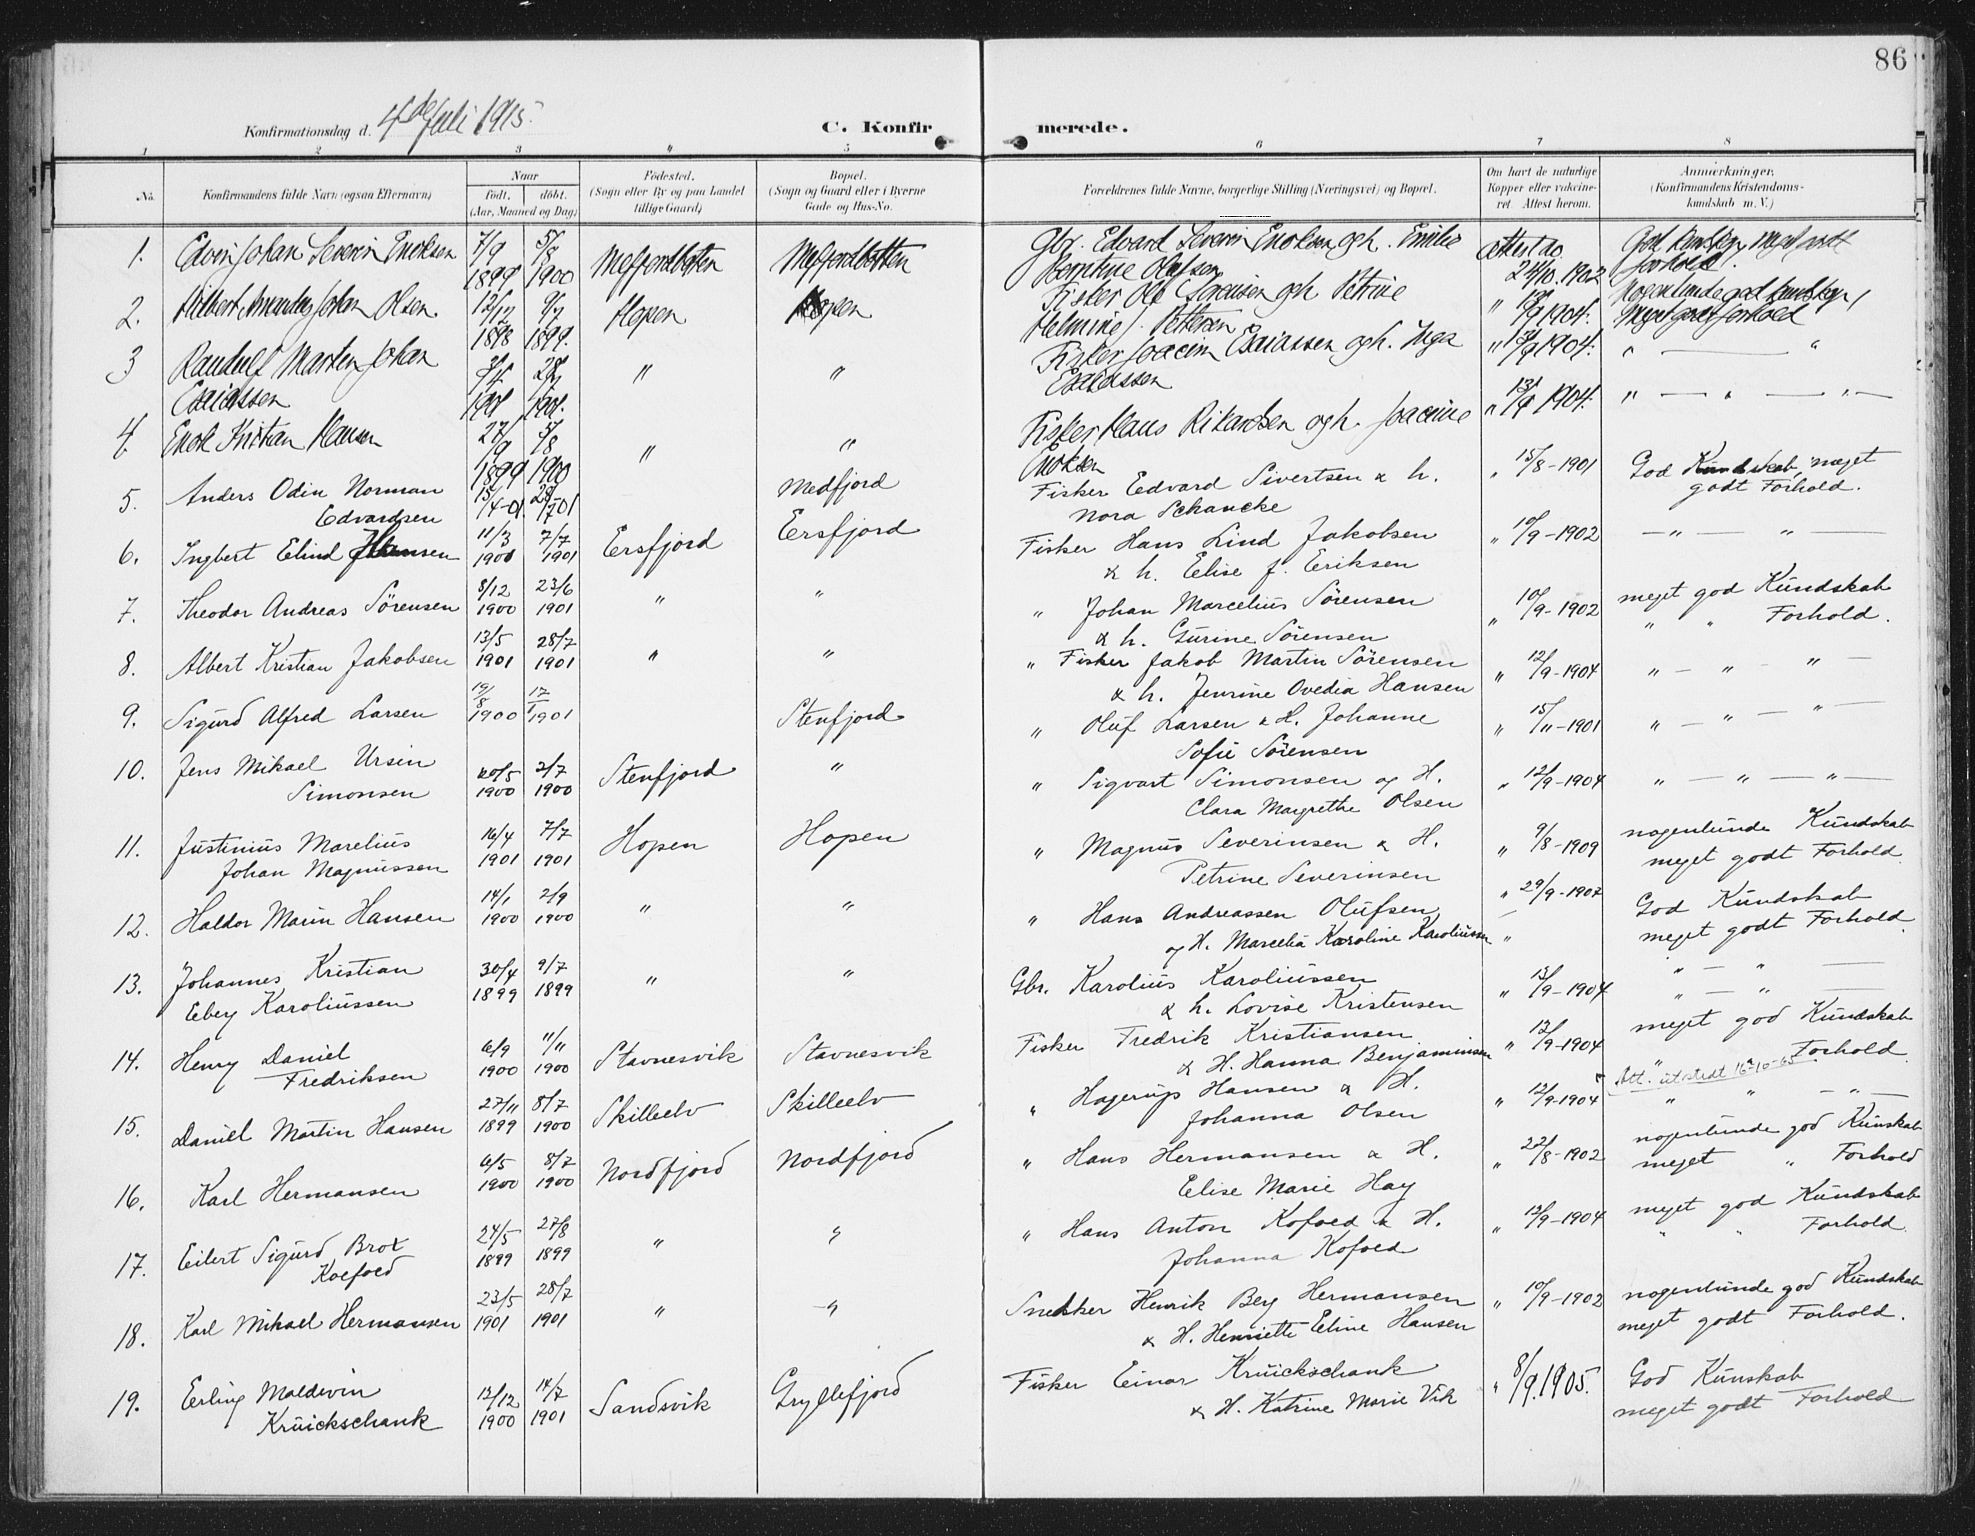 86
Konfirmationsdag d. 4de Juli 1915.
C. Konfirmerede.
1 2 3 " 5 6 7 8
No. Konfirmandens fulde Navn (ogsaa Efternavn) Naar født, døbt. (Aar, Maaned og Dag) Fødested. (Sogn eller By og paa Landet tillige Gaard) Bopæl. (Sogn og Gaard eller i Byerne Gade og Hus-No. Forældrenes fulde Navne, borgerlige Stilling (Næringsvei) og Bopæl. Om havt de naturlige Kopper eller vakcineret. Attest herom. Anmærkninger. (Konfirmandens Kristendomskundskab m. V.)
1. Edvin Johan Severin Enoksen 7/9 1899 5/8 1900 Mefjordbotten Mefjordbotten Gbr. Edvard Severin Enoksen og h. Emilie Olufsen 24/10.1902
2. Johan Olsen. 12/12 1898 9/7 1899. Hopen Hopen Fisker Ole Sørensen og h. Petrine Pettersen " 1904.
3 Randulf Marten Johan Esaiassen 1901 1901. " " Fisker Joacim Esaiassen og h. Inga Esaiassen " 13/9 1904. " — "
4. Enok Kristian Hansen 27/9 1899 5/8 1900 " " Fisker Hans Rikardsen og h. Joacine Enoksen " 13/9 1904. " — " — " —
5. Anders Odin Norman Edvardsen 15/4-01. 28/7 01 Medfjord Fisker Edvard Sivertsen & h. Nora Schancke " 15/8-1901 God Kundskab, meget godt Forhold.
6. Ingbert Elind 11/3 1901 7/7 1901 Ersfjord Ersfjord Fisker Hans Lind Jakobsen & h. Elise f. Eriksen " 10/9-1902 — " — " —
7. Theodor Andreas Sörensen 8/12 1900 23/6 1901 " " " Johan Marcelius Sörensen & h. Gurine Sörensen " 10/9-1902 meget god Kundskab " " Forhold.
8. Albert Kristian Jakobsen 13/5 1901 28/7 1901 " " " Fisker Jakob Martin Sörensen & h. Jenrine Ovedia Hansen " 12/9-1904 " — " — " —
9. Sigurd Alfred Larsen 19/8 1900 17/1 1901 Stenfjord " Oluf Larsen & H. Johanne Sofie Sörensen " 15/11-1901 " — " — " —
10. Jens Mikael Ursin Simonsen 20/5 1900 2/7 1900 Stenfjord " " Sigvart Simonsen og H. Clara Margrethe Olsen " 12/9-1904 " — " — " —
11. Justinius Marelius Johan Magnussen 16/4 1901 7/7 1901 Hopen Hopen " Magnus Severinsen & H. Petrine Severinsen " 9/8-1909 nogenlunde Kundskab meget godt Forhold.
12. Haldor Marin Hansen 14/1 1900 2/9 1900 " " " Hans Andreassen Olufsen og H. Marcelia Karoline Karoliussen " 29/9-1907 God Kundskab meget godt Forhold.
13. Johannes Kristian Eberg Karoliussen 30/4 1899 9/7 1899 " " Gbr. Karolius Karoliussen & h. Lovise Kristensen " 13/9-1904 " — " — " — " —
14. Henry Daniel Fredriksen 6/9 1900 11/11 1900 Stavnesvik Stavnesvik Fisker Fredrik Kristiansen & H. Hanna Benjaminsen " 12/9-1904 meget god Kundskab " Forhold.
Att. utstedt 16-10-65
15. Daniel Martin Hansen 27/11 1899 8/7 1900 Skilleelv Skilleelv " Hagerup Hansen & H. Johanna Olsen " 12/9-1904 " " — " —
16. Karl Hermansen 6/5 1900 8/7 1900 Nordfjord Nordfjord " Hans Hermansen & H. Elise Marie Hay " 22/8-1902 nogenlunde god Kunskab meget " Forhold
17. Eilert Sigurd Brox Koefoed 24/5 1899 27/8 1899 " " " Hans Anton Kofoed & H. Johanna Kofoed " 12/9-1904 meget god Kundskab " " Forhold.
18. Karl Mikael Hermansen 23/5 1901 28/7 1901 " " Snekker Henrik Berg Hermansen & H. Henriette Eline Hansen " 10/9-1902 nogenlunde god Kundskab meget godt Forhold.
19. Erling Maldevin Kruickschank 12/12 1900 14/7 1901 Sandsvik Gryllefjord Fisker Einar Kruickschank & H. Katrine Marie Vik " 8/9.1905. God Kunskab meget godt Forhold